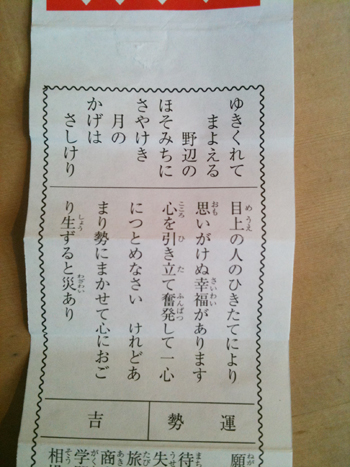 ゆきくれて
まよえる
野辺の
ほそみちに
さやけき
月の
かげは
さしけり
目上の人のひきたてにより
思いがけぬ幸福があります
心を引き立て奮発して一心
につとめなさい けれどあ
まり勢にまかせて心におご
り生ずると災あり
運勢
吉
願
待
失
旅
商
学
相